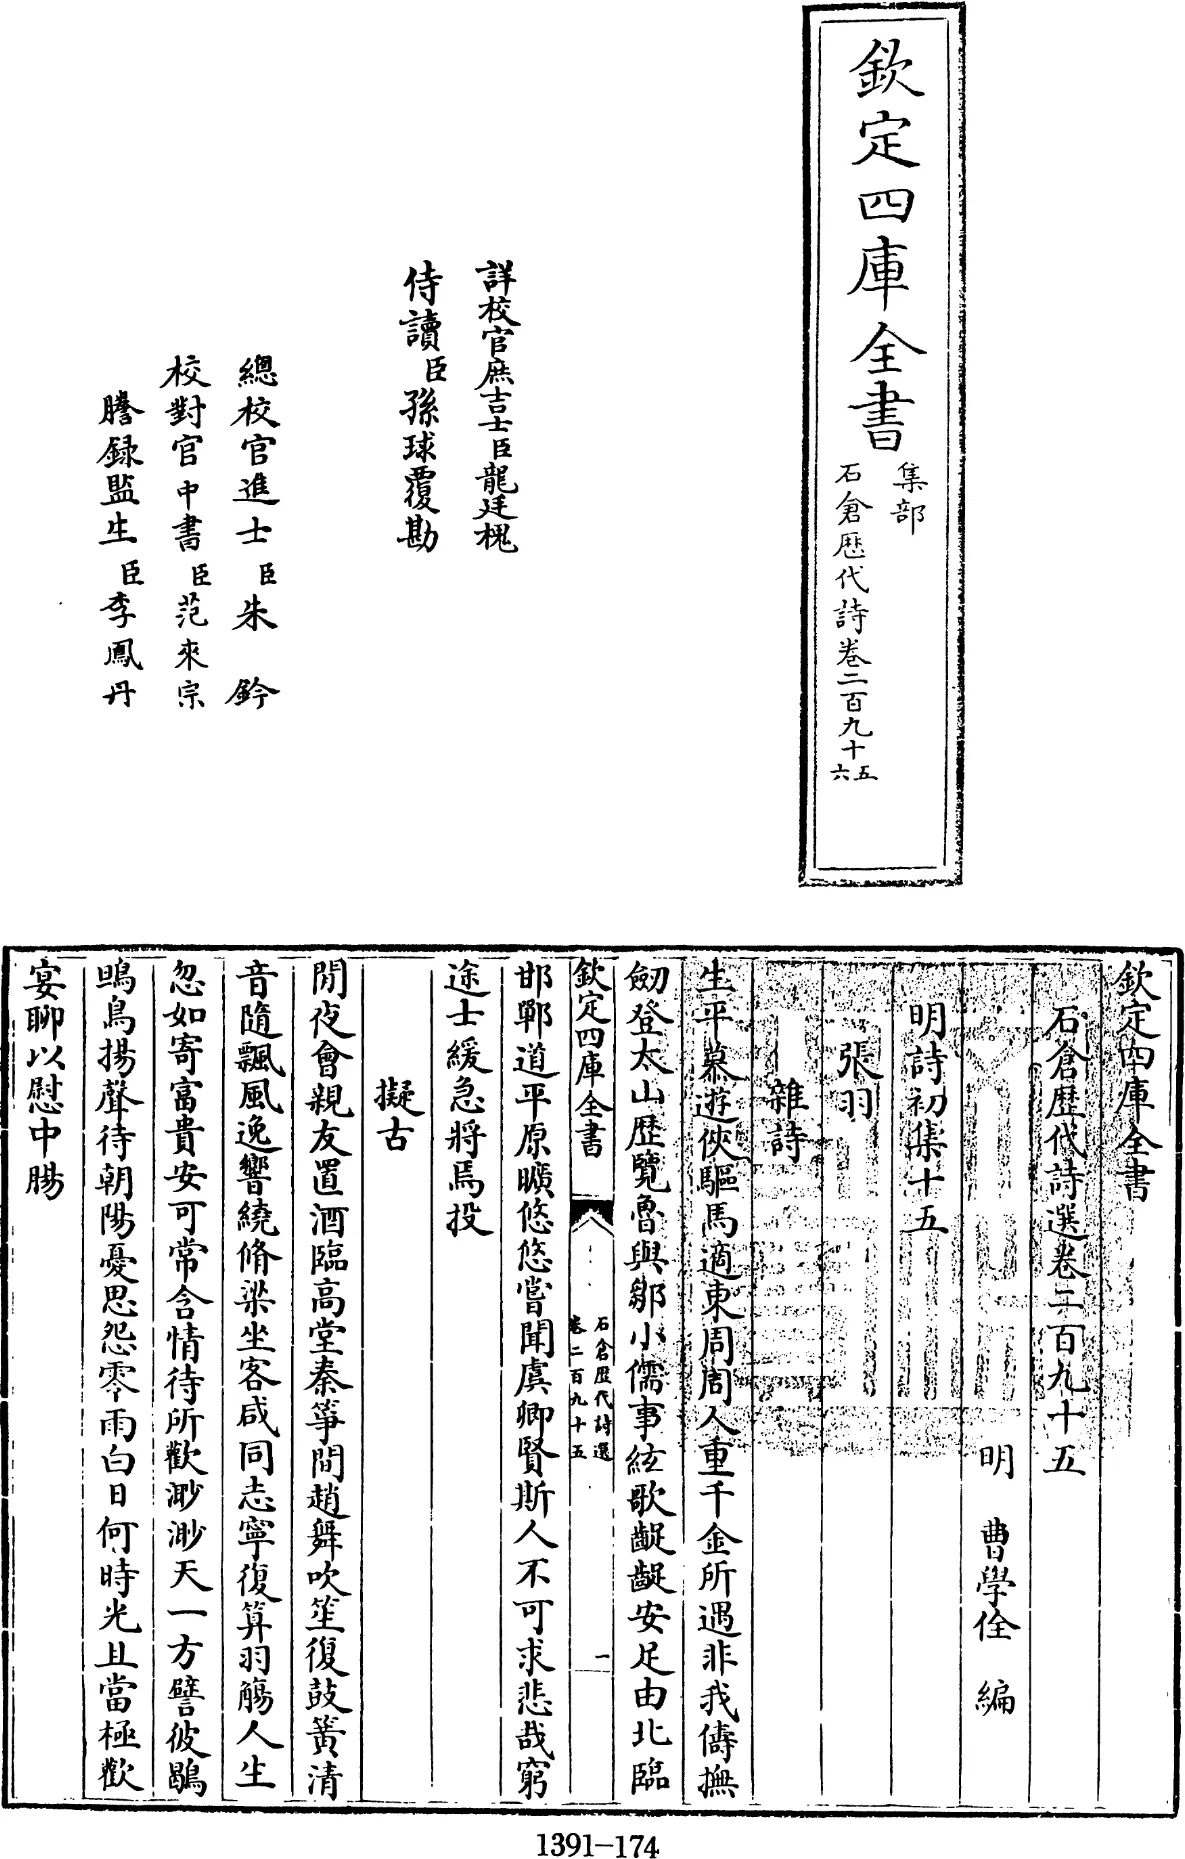 欽定四庫全書
集部
石倉歴代詩卷二百九十五
六
詳校官庶吉士臣龍廷槐
侍讀臣孫球覆勘
總校官進士臣朱鈐
校對官中書臣范來宗
謄録監生臣李鳳丹
欽定四庫全書
石倉歴代詩選卷二百九十五
明 曹學佺 編
明詩初集十五
張羽
雜詩
生平慕遊俠驅馬適東周周人重千金所遇非我儔撫
劒登太山歴覽魯與鄒小儒事絃歌齪齪安足由北臨
欽定四庫全書
石倉歴代詩選
卷二百九十五
一
邯鄲道平原曠悠悠嘗聞虞卿賢斯人不可求悲哉窮
途士緩急將焉投
擬古
閒夜會親友置酒臨高堂秦箏間趙舞吹笙復鼓簧清
音隨飄風逸響繞脩梁坐客咸同志寧復算羽觴人生
忽如寄富貴安可常含情待所歡渺渺天一方譬彼鶡
鴠鳥揚聲待朝陽憂思怨零雨白日何時光且當極歡
宴聊以慰中腸
1391-174